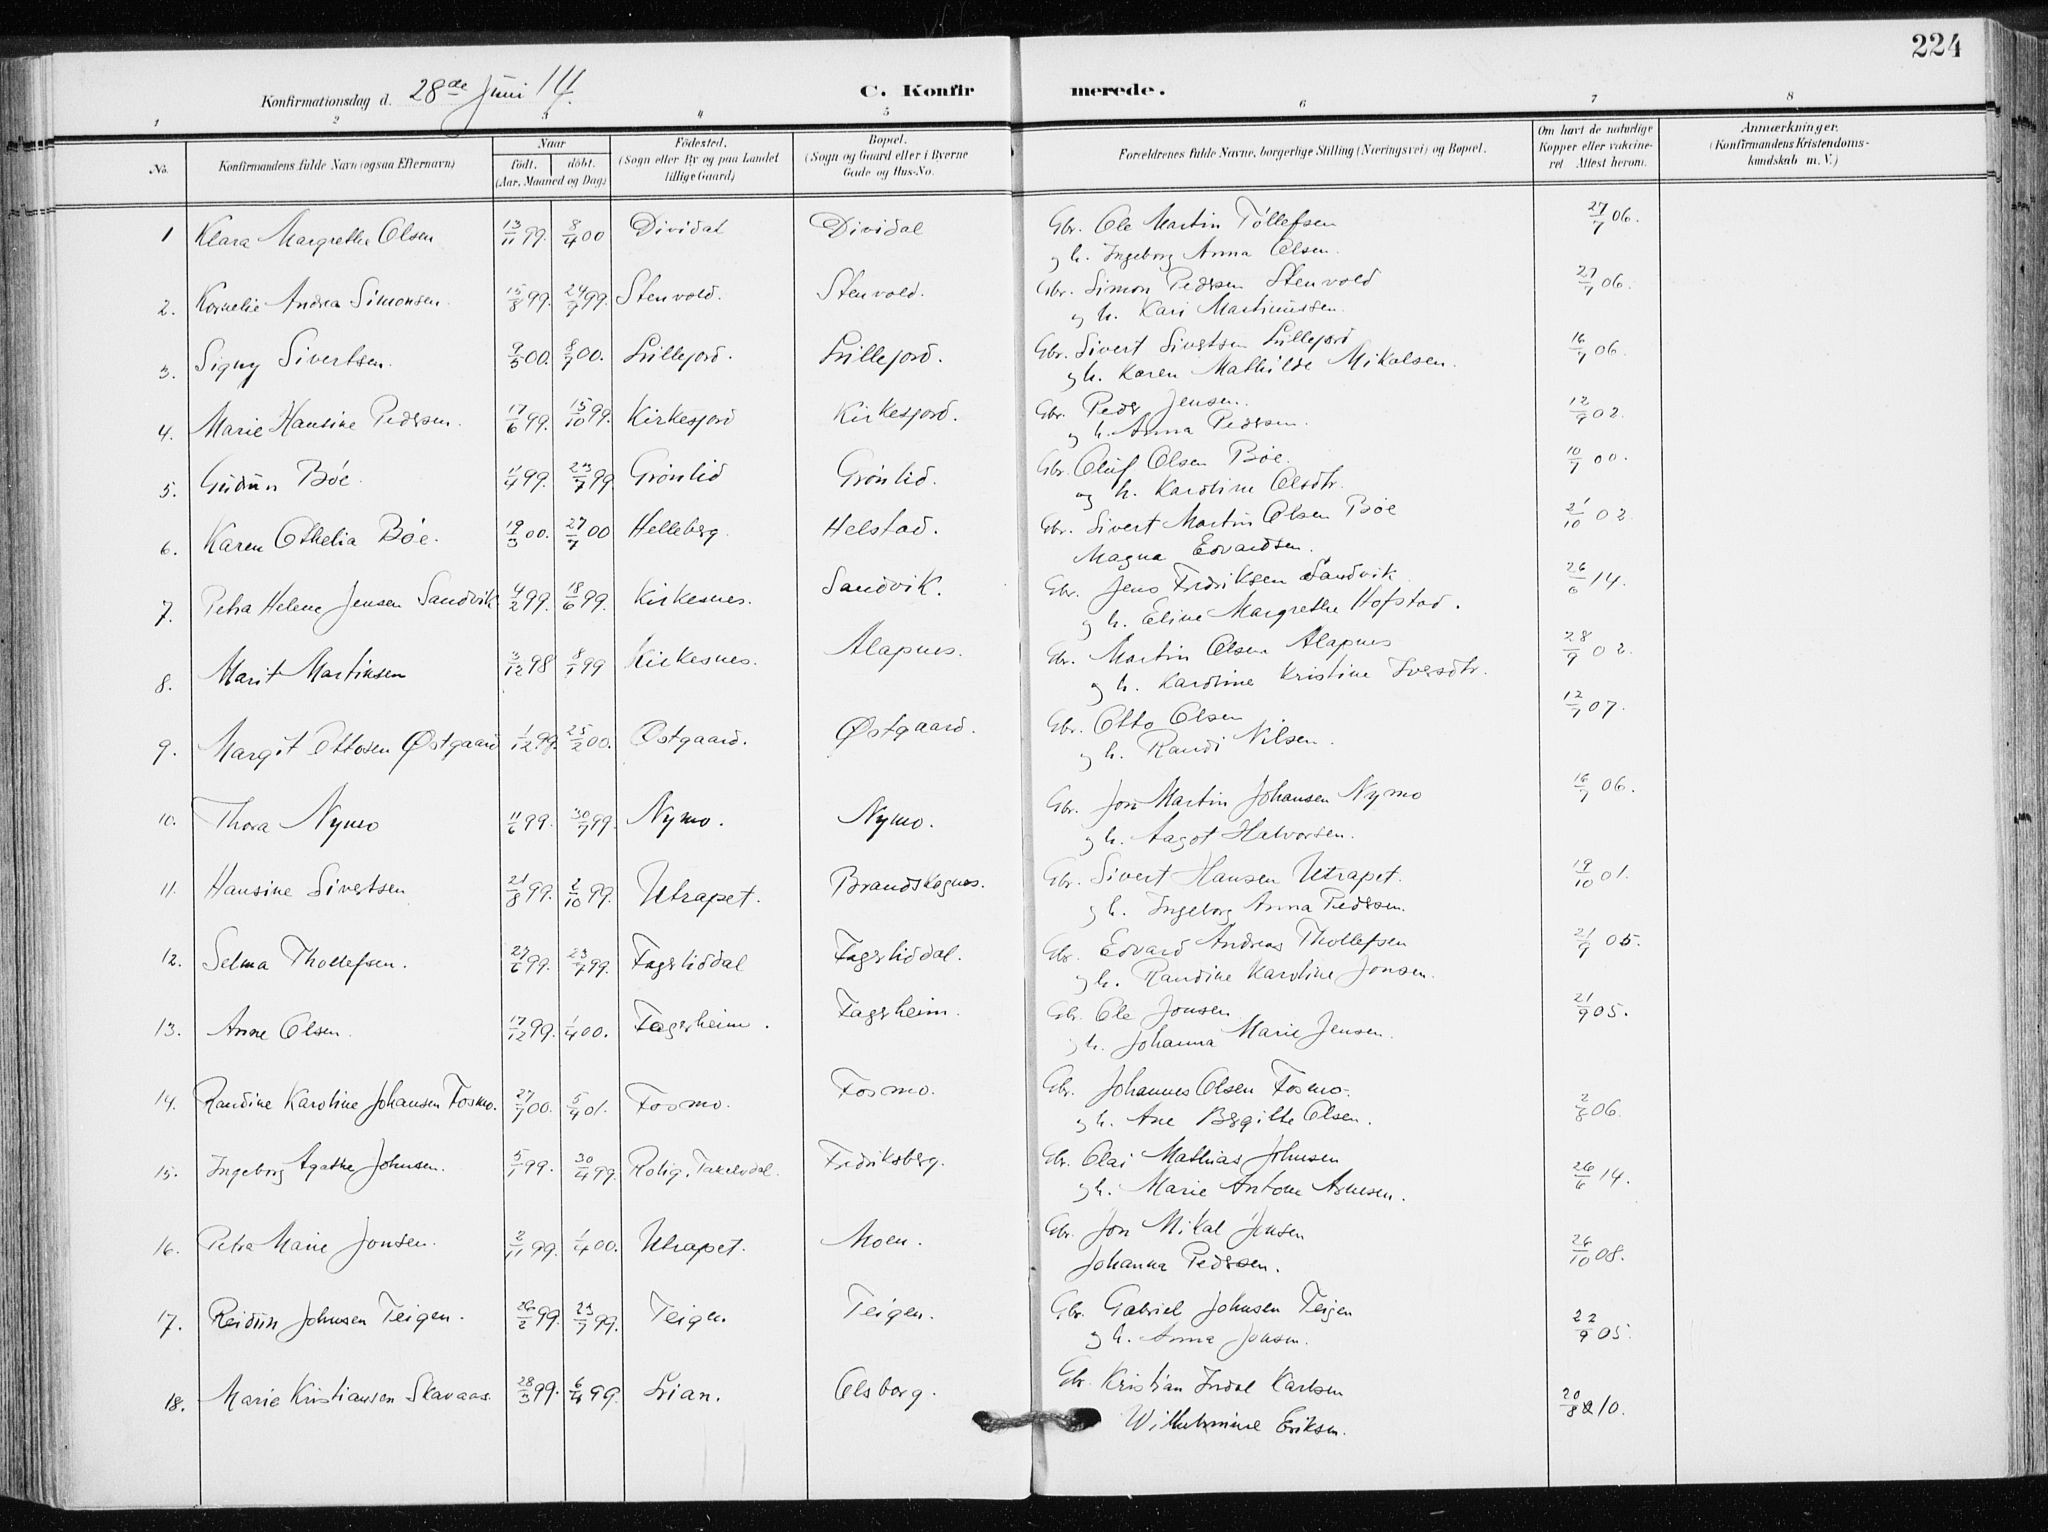 224
Konfirmationsdag d. 28de Juni 14. C. Konfirmerede.
1 2 3 4 5 6 7 8
No. Konfirmandens fulde Navn (ogsaa Efternavn) Naar født. døbt. (Aar, Maaned og Dag) Fødested. (Sogn eller By og paa Landet tillige Gaard) Bopæl. (Sogn og Gaard eller i Byerne Gade og Hus-No. Forældrenes fulde Navne, borgerlige Stilling (Næringsvei) og Bopæl. Om havt de naturlige Kopper eller vaccineret Attest herom. Anmærkninger. (Konfirmandens Kristendomskundskab m. V.)
1 Klara Margrethe Olsen 13/11 99. 8/4 00 Dividal Dividal Gbr. Ole Martin Tollefsen 27/7 06.
og h. Ingeborg Anna Olsen.
2. Kornelie Andrea Simonsen. 15/8 99. 24/7 99. Stenvold. Stenvold. Gbr. Simon Pedersen Stenvold 27/7 06.
og h. Kari Martinussen.
3. Signy Sivertsen. 9/3 00. 8/7 00. Lillejord. Lillejord. Gbr. Sivert Sivertsen Lillejord 16/7 06.
og h. Karen Mathilde Mikalsen.
4. Marie Hansine Pedersen. 17/6 99. 15/10 99. Kirkesjord Kirkesjord. Gbr. Peder Jensen. 12/9 02.
og h. Anna Pedersen.
5. Gudrun Bøe. 99. 23/7 99. Grønlid Grønlid. Gbr. Oluf Olsen Bøe. 10/7 00.
og h. Karoline Olsdtr.
6. Karen Othelia Bøe. 19/3 00. 27/7 00 Helleberg. Helstad. Gbr. Sivert Martin Olsen Bøe 21/10 02.
Magna Edvardsen.
7. Petra Helene Jensen Sandvik 4/2 99. 18/6 99. Kirkesnes. Sandvik. Gbr. Jens Fredriksen Sandvik 26/6 14.
og h. Eline Margrethe Hofstad.
8. Marit Martinsen 3/12 98 8/1 99 Kirkesnes. Alapnes. Gbr. Martin Olsen Alapnes 28/9 02.
og h. Karoline Kristine Iversdtr.
9. Margit Ottosen Østgaard 1/12 99. 25/2 00. Østgaard. Østgaard. Gbr. Otto Olsen 12/7 07.
og h. Randi Nilsen.
10. Thora Nymo 11/6 99. 30/7 99. Nymo. Nymo. Gbr. Jon Martin Johansen Nymo 16/7 06.
og h. Aagot Halvorsen.
11. Hansine Sivertsen 21/8 99. 2/10 99. Utrapet. Brandskognes. Gbr. Sivert Hansen Utrapet. 19/10 01.
og h. Ingeborg Anna Pedersen.
12. Selma Thollefsen. 27/6 99. 23/7 99. Fagerliddal Fagerliddal. Gbr. Edvard Andreas Thollefsen 21/9 05.
og h. Randine Karoline Jonsen.
13. Anne Olsen. 17/12 99. 1/4 00. Fagerheim. Fagerheim. Gbr. Ole Jonsen 21/9 05.
og h. Johanna Marie Jensen.
14. Randine Karoline Johansen Fosmo. 27/7 00. 5/4 01. Fosmo. Fosmo. Gbr. Johannes Olsen Fosmo. 2/8 06.
og h. Ane Bergitte Olsen.
15. Ingeborg Agathe Johnsen. 5/1 99. 30/4 99. Rolig. Takelvdal. Fredriksberg. Gbr. Olai Mathias Johnsen 26/6 14.
og h. Marie Antone Arnesen.
16. Petra Marie Jonsen. 2/11 99. 1/4 00. Utrapet. Moen. Gbr. Jon Mikal Jensen 26/10 08.
Johanna Pedersen.
17. Reidun Johnsen Teigen. 26/2 99. 23/7 99. Teigen. Teigen. Gbr. Gabriel Johnsen Teigen 22/9 05.
og h. Anna Jonsen.
18. Marie Kristiansen Skavaas. 28/3 99. 6/4 99. Lian. Olsborg. Gbr. Kristian Indal Karlsen 20/8 10.
Wilhelmine Eriksen.